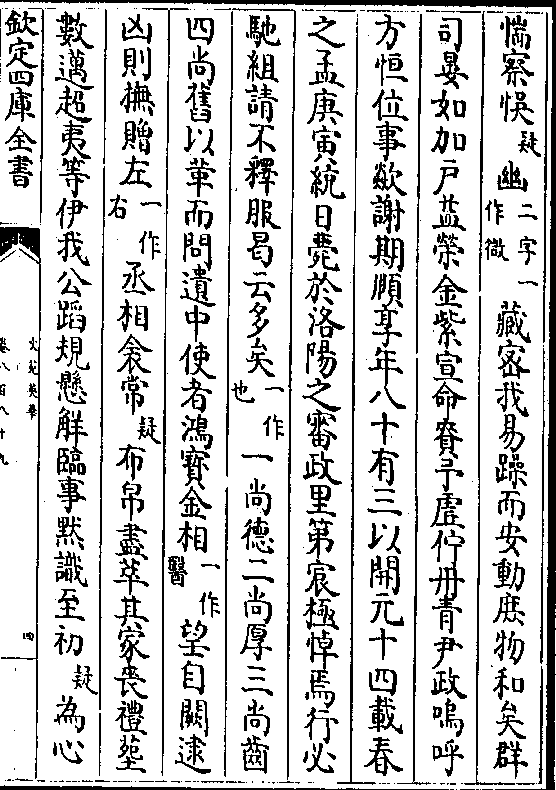 惴察悞疑幽二字一作微藏密我易躁而安動庶物和矣群
司晏如加戸益榮金紫宣命賚予虚佇丹青尹政嗚呼
方恒位事欻謝期順享年八十有三以開元十四載春
之孟庚寅統日薨於洛陽之審政里第宸極悼焉行必
馳組請不釋服曷云多矣一作也一尚德二尚厚三尚齒
四尚舊以葷而問遺中使者鴻寳金相一作醫望自闕逮
凶則撫贈左一作右丞相衾常疑布帛盡萃其家喪禮塟
數邁超夷等伊我公蹈規懸觧臨事黙識至初疑為心
欽定四庫全書
文苑英華
卷八百八十九
四